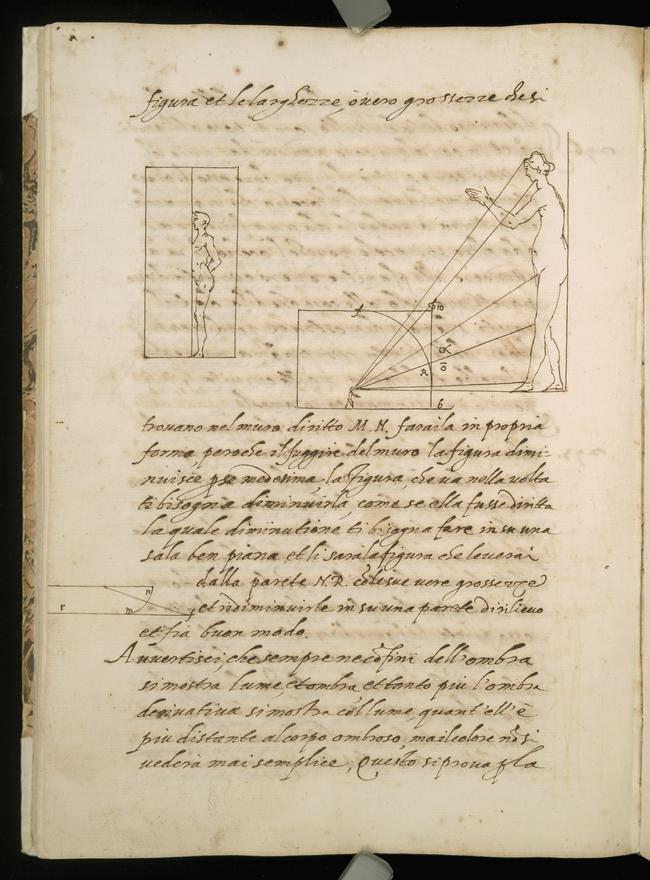 figura et le larghezze, overo grossezze che si
f
n
10
a
o
R
6
trovano nel muro diritto M. N. faraila in propria
forma, peroche il fuggire del muro la figura dimi-
nuisce p se medesima, la figura che va nella volta
ti bisogna diminuirla, come se ella fusse diritta
la quale diminutione ti bisogna fare in su una
sala ben piana et li sara la figura che leverai
dalla parete N.R. cõ le sue vere grossezze
et ridiminuirle in su una parete di rilievo
et fia buon modo.
n
r
m
Avvertisci, che sempre ne cõfini dell'ombra
si mostra lume et ombra et tanto piu l'ombra
derivativa si mostra col lume, quant'ell'è
piu distante al corpo ombroso, ma il colore nõ si
vederà mai semplice; Questo si prova p la